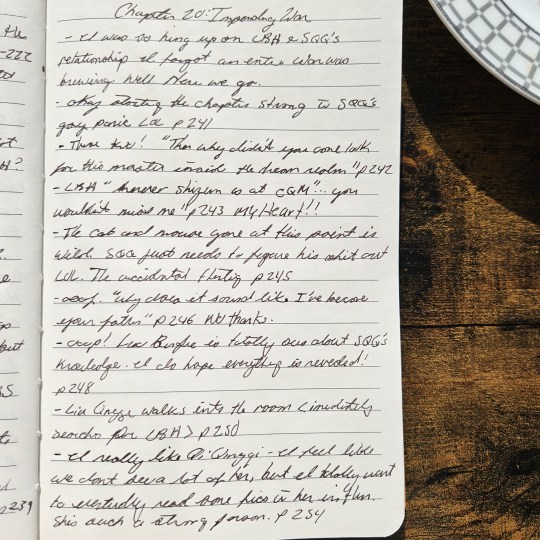 the
-222
Chapter 20: Impending War
- I was so hung up on LBH & SQQ's
relationship I forgot an entire war was
brewing. Well Here we go.
- okay starting the chapter strong w SQQ's
gay panic LOL p 241
- These two! "Then why didn't you come look
for this master inside the dream realm" p242
- LBH "whenever shizun is at CQM"... you
wouldn't miss me" p243 MY Heart!!
- The cat and mouse game at this point is
wild. SQQ just needs to figure his shit out
LOL. The accidental flirting p 245
- ooof. "why does it sound like I've become
your father" p 246 NO thanks.
- ooop! Liu Qingge is totally sus about SQQ's
knowledge. I do hope everything is revealed!
p248
- Liu Qingge walks into the room < immediately
searches for LBH > p 250
- I really like Qi Qingqi - I feel like
we dont see a lot of her, but I totally want
to eventually read some fics w her in them.
She's such a strong person. p 254
H?
but
p239